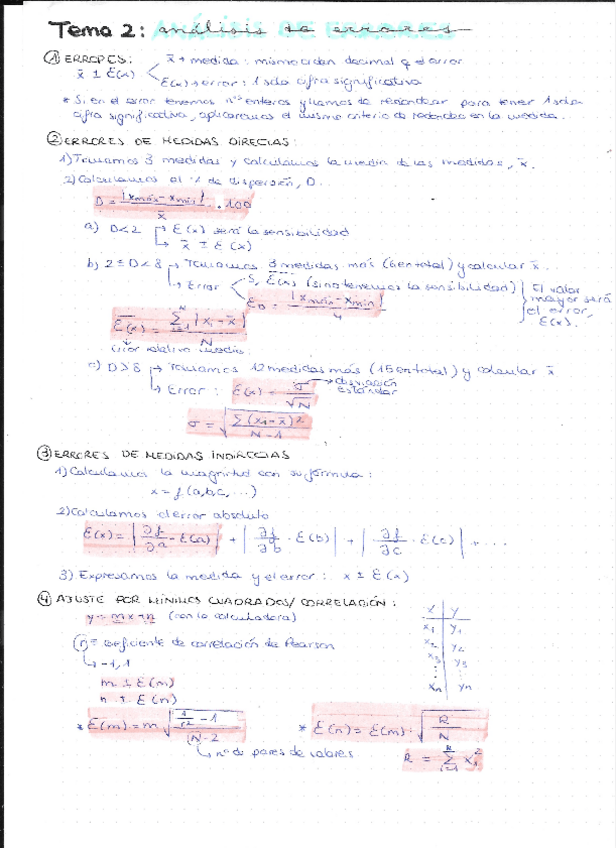 Tema 2: análisis de errores
① ERRORES:
x̄ → medida: misma cifra decimal q el error
x̄ ± Ɛ(x)
Ɛ(x) → error: 1 sola cifra significativa
* Si en el error tenemos nºs enteros y hemos de redondear para tener 1 sola
cifra significativa, aplicaremos el mismo criterio de redondeo en la medida.
② ERRORES DE MEDIDAS DIRECTAS:
1) Tomamos 3 medidas y calculamos la media de las medidas, x̄.
2) Calculamos el % de dispersión, D.
D = |xmáx - xmin| / x̄ · 100
a) D<2 → Ɛ(x) será la sensibilidad
→ x̄ ± Ɛ(x)
b) 2 ≤ D < 8 → Tomamos 3 medidas más (6 en total) y calcular x̄.
→ Error
S, Ɛ(x) (si no tenemos la sensibilidad)
ƐD = |xmáx - xmin| / 4
El valor
mayor será
el error,
Ɛ(x).
Ɛ(x) = Σ |xi - x̄| / N
error relativo medio.
c) D>8 → Tomamos 12 medidas más (15 en total) y calcular x̄
→ Error: Ɛ(x) = σ / √N → desviación
estándar
σ = √(Σ(xi - x̄)² / N-1)
③ ERRORES DE MEDIDAS INDIRECTAS
1) Calculamos la magnitud con su fórmula:
x = f(a,b,c, ...)
2) Calculamos el error absoluto
Ɛ(x) = |∂f/∂a · Ɛ(a)| + |∂f/∂b · Ɛ(b)| + |∂f/∂c · Ɛ(c)| + ...
3) Expresamos la medida y el error: x ± Ɛ(x)
④ AJUSTE POR MÍNIMOS CUADRADOS/CORRELACIÓN:
y = mx + n (con la calculadora)
x y
x1 y1
x2 y2
x3 y3
⋮ ⋮
xn yn
r = coeficiente de correlación de Pearson
→ -1,1
m ± Ɛ(m)
n ± Ɛ(n)
* Ɛ(m) = m √((1/r² - 1) / N-2)
→ nº de pares de valores
* Ɛ(n) = Ɛ(m) · √(R / N)
R = Σ xi²